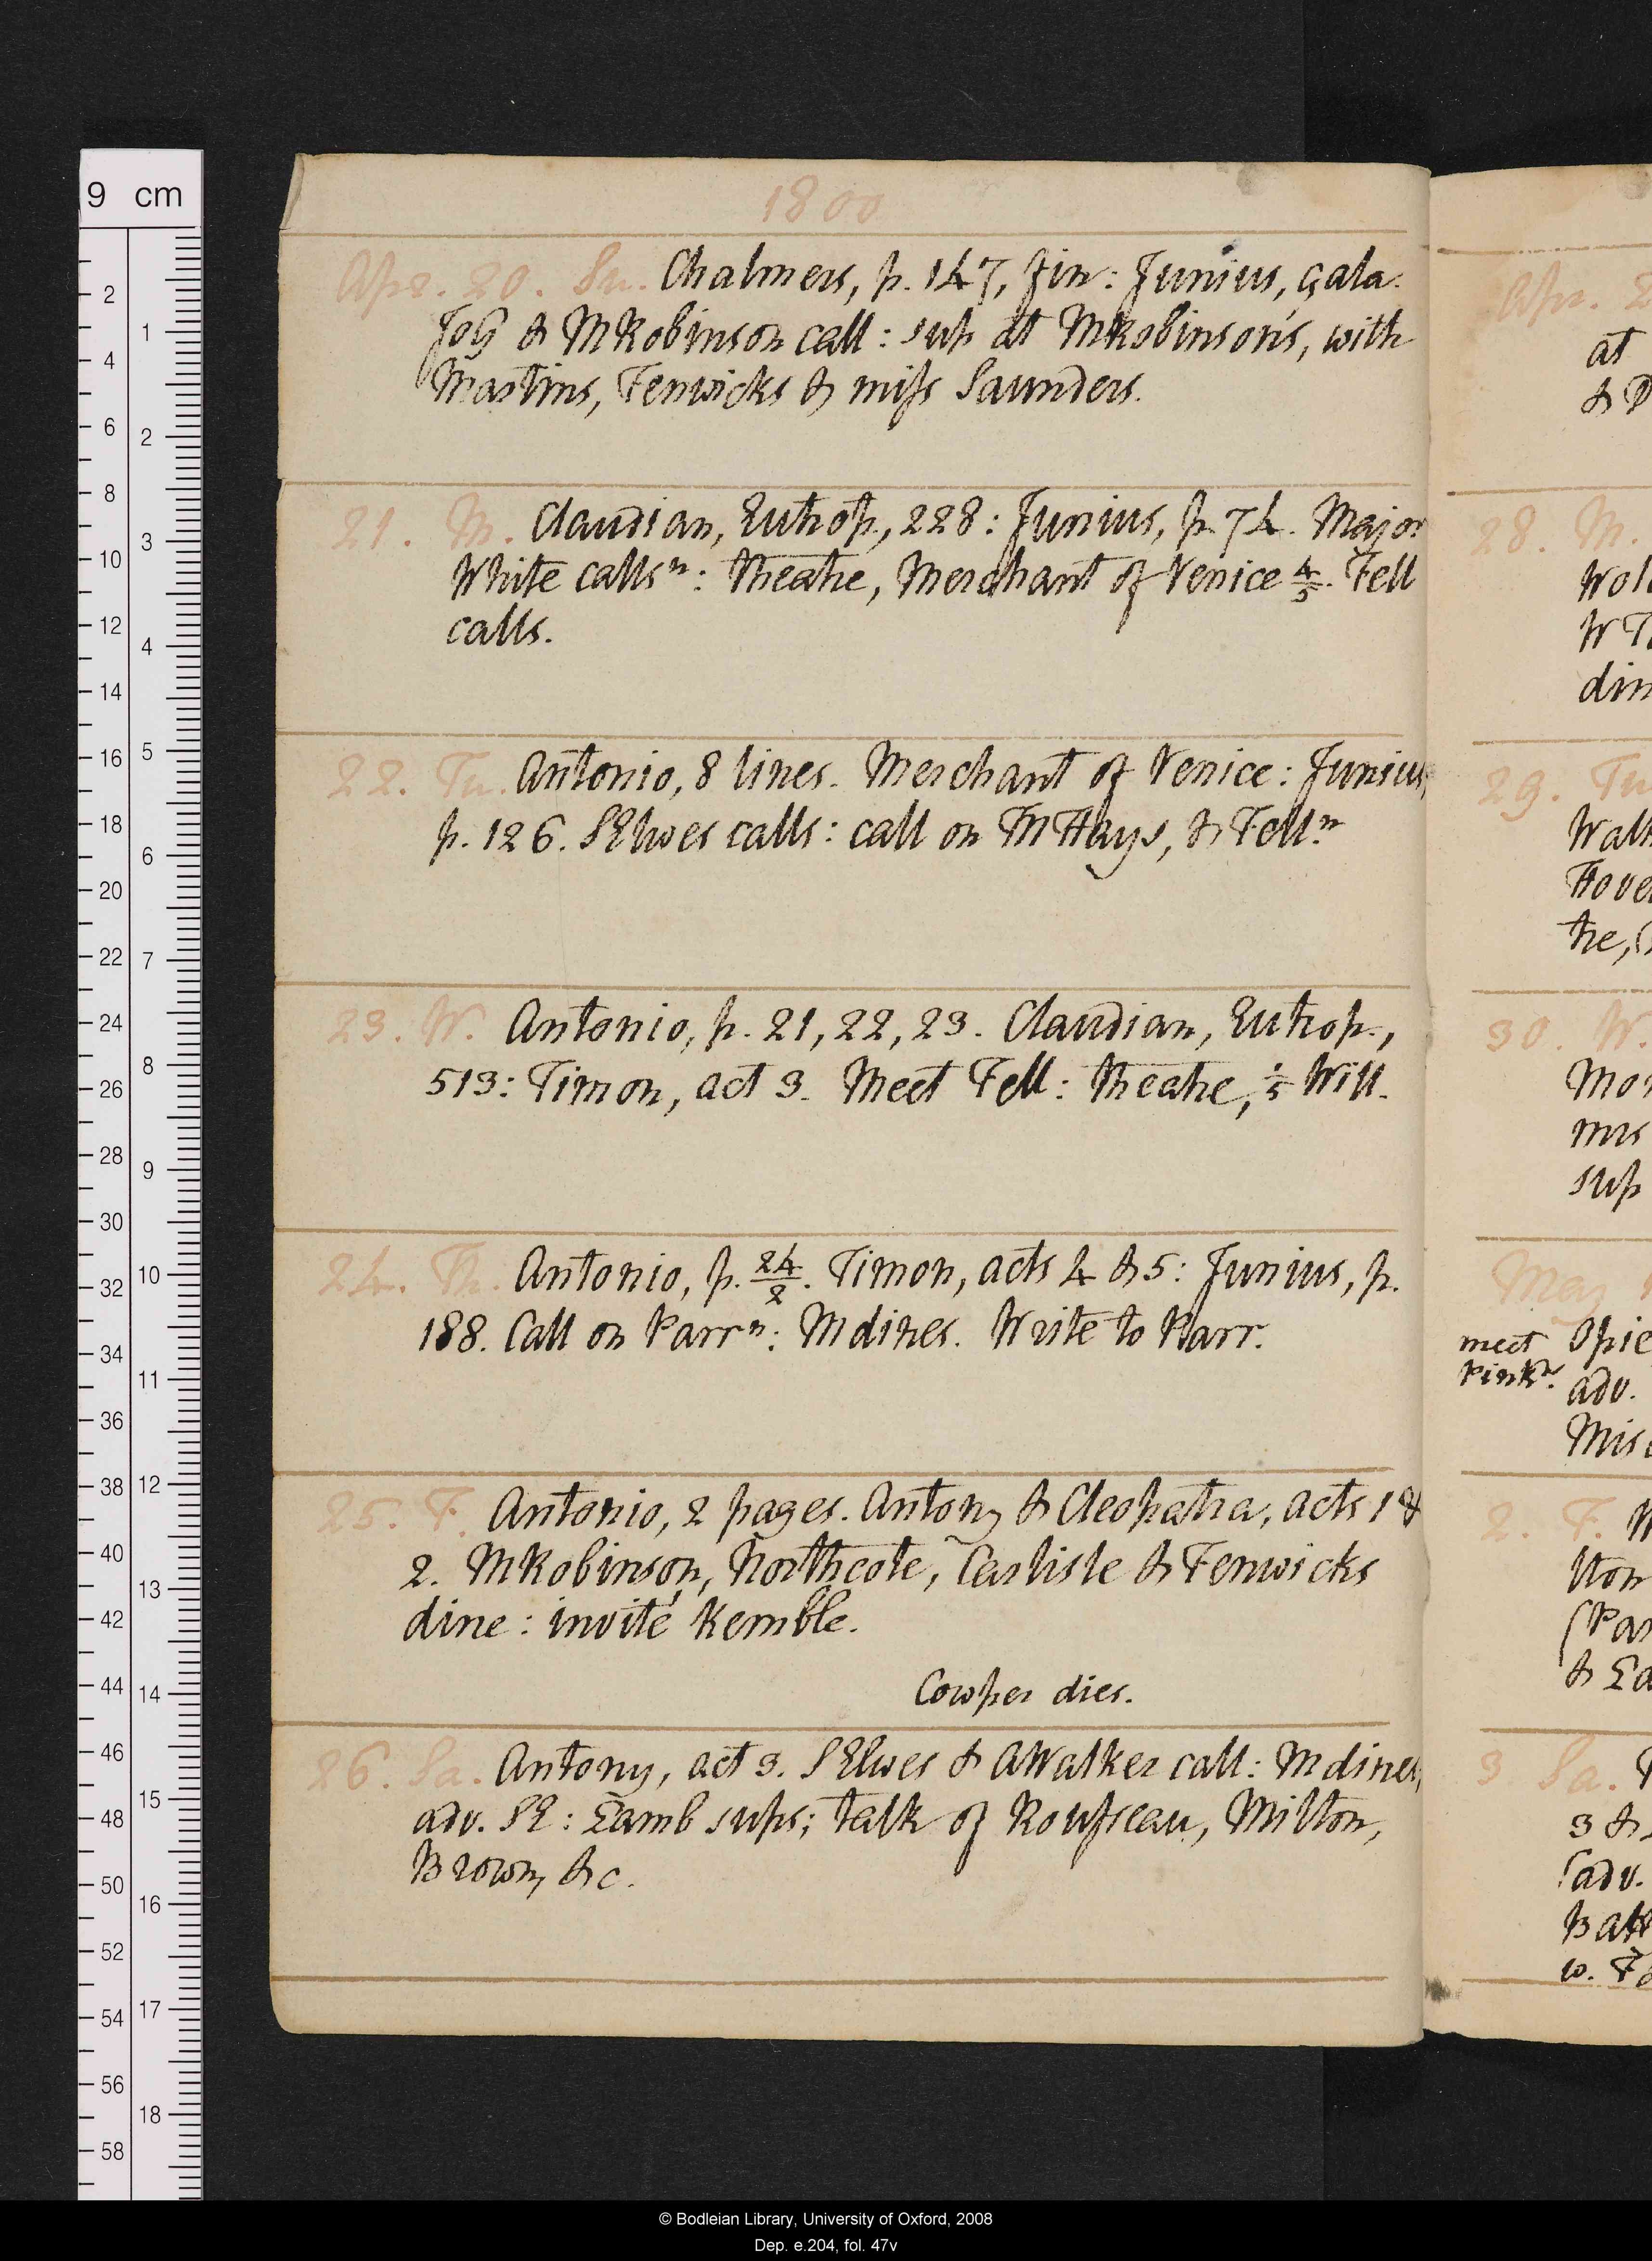 1800
Apr. 20. Su. Chalmers, p. 147, fin: Junius, çala.
Jos & M Robinson call: sup at M Robinson's, with
Martins, Fenwicks & miss Saunders.
21. M. Claudian, Eutrop., 228: Junius, p. 74. Major
White calls n: theatre, Merchant of Venice 4/5. Fell
calls.
22. Tu. Antonio, 8 lines. Merchant of Venice: Junius,
p. 126. S Elwes calls: call on M Hays, & Fell n
23. W. Antonio, p. 21, 22, 23. Claudian, Eutrop.,
513: Timon, act 3. Meet Fell: theatre, 1/5 Will.
24. Th. Antonio, p. 24/2. Timon, acts 4 & 5: Junius, p.
188. Call on Parr n: M dines. Write to Parr.
25. F. Antonio, 2 pages. Antony & Cleopatra, acts 1 &
2. M Robinson, Northcote, Carlisle & Fenwicks
dine: invité Kemble.
Cowper dies.
26. Sa. Antony, act 3. S Elwes & A Walker call: M dines,
adv. SE: Lamb sups; talk of Rousseau, Milton,
Brown, &c.
Apr. 2
at
& D
28. M.
Wol
W T
din
29. Tu
Walk
Hove
tre,
30. W.
Mon
mrs
sup
May 1
meet Opie
Pink r. adv.
Mis
2. F.
lton
(Par
& La
3 Sa.
3 &
(adv.
Batt
w. F
9 cm
2 4 6 8 10 12 14 16 18 20 22 24 26 28 30 32 34 36 38 40 42 44 46 48 50 52 54 56 58
1 2 3 4 5 6 7 8 9 10 11 12 13 14 15 16 17 18
© Bodleian Library, University of Oxford, 2008
Dep. e.204, fol. 47v